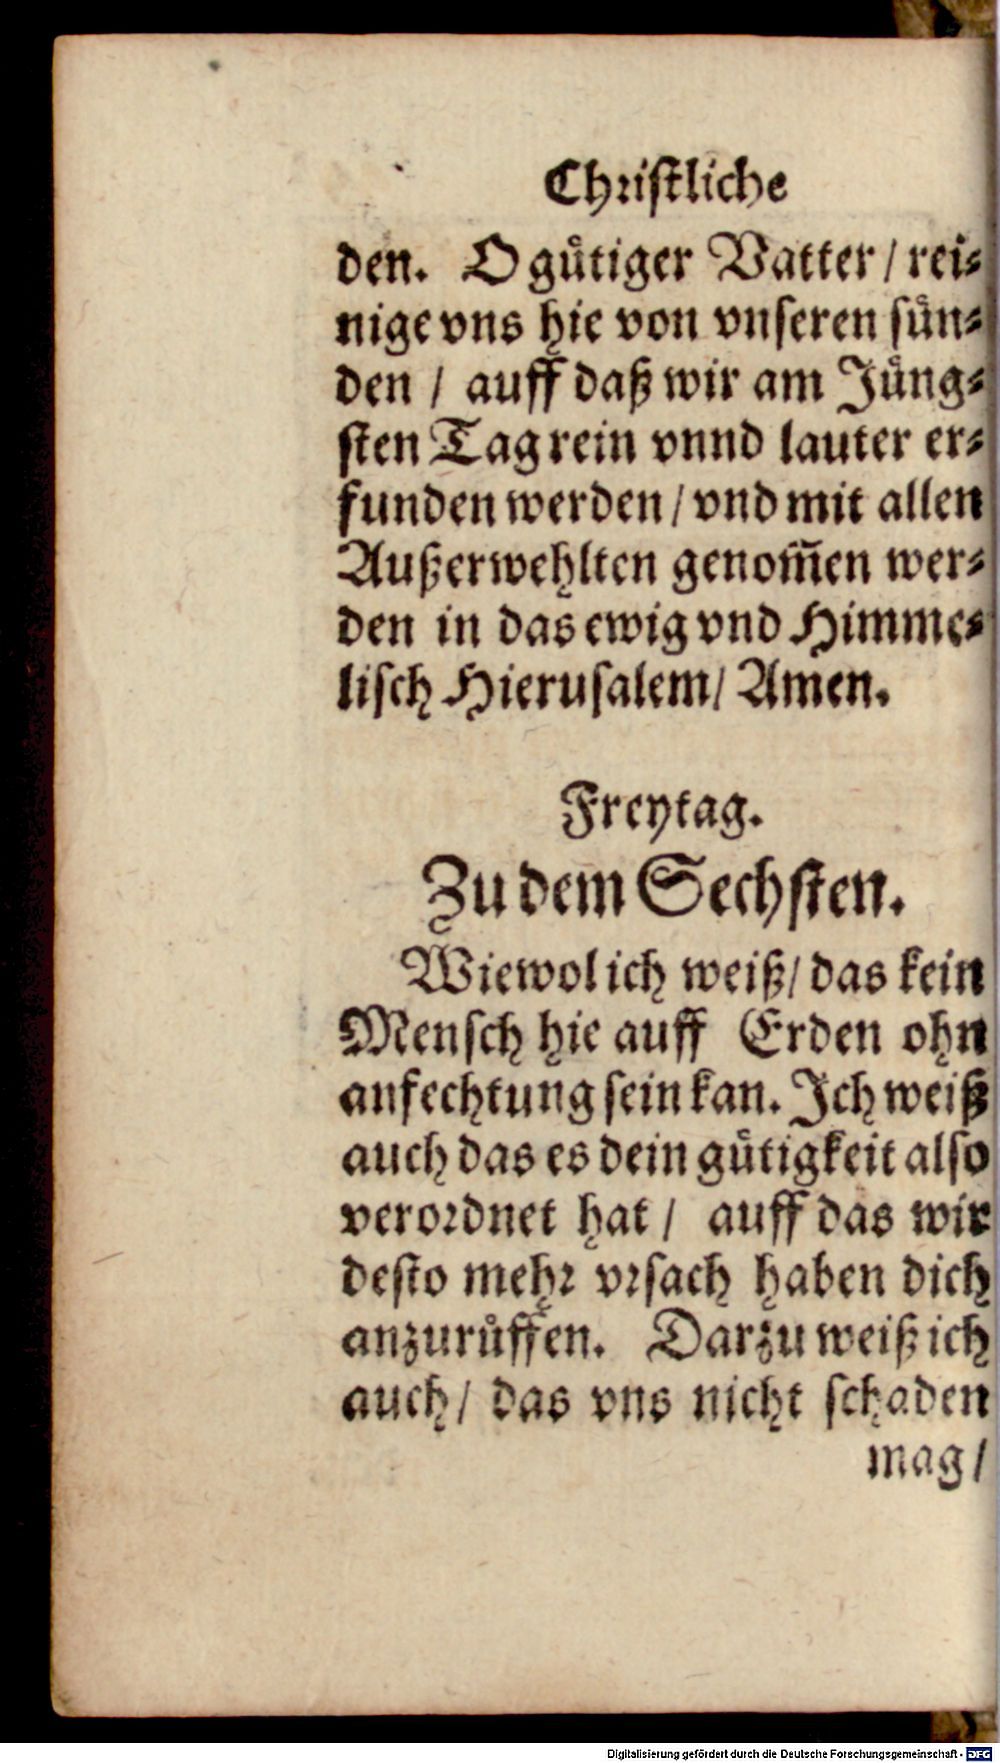 Christliche
den. O gütiger Vatter / rei⸗
nige vns hie von vnseren sün⸗
den / auff daß wir am Jüng⸗
sten Tag rein vnnd lauter er⸗
funden werden / vnd mit allen
Außerwehlten genom̅en wer⸗
den in das ewig vnd Himme⸗
lisch Hierusalem / Amen.
Freytag.
Zu dem Sechsten.
Wiewol ich weiß / das kein
Mensch hie auff Erden ohn
anfechtung sein kan. Ich weiß
auch das es dein gütigkeit also
verordnet hat / auff das wir
desto mehr vrsach haben dich
anzurůffen. Darzu weiß ich
auch / das vns nicht schaden
mag /
Digitalisierung gefördert durch die Deutsche Forschungsgemeinschaft - DFG